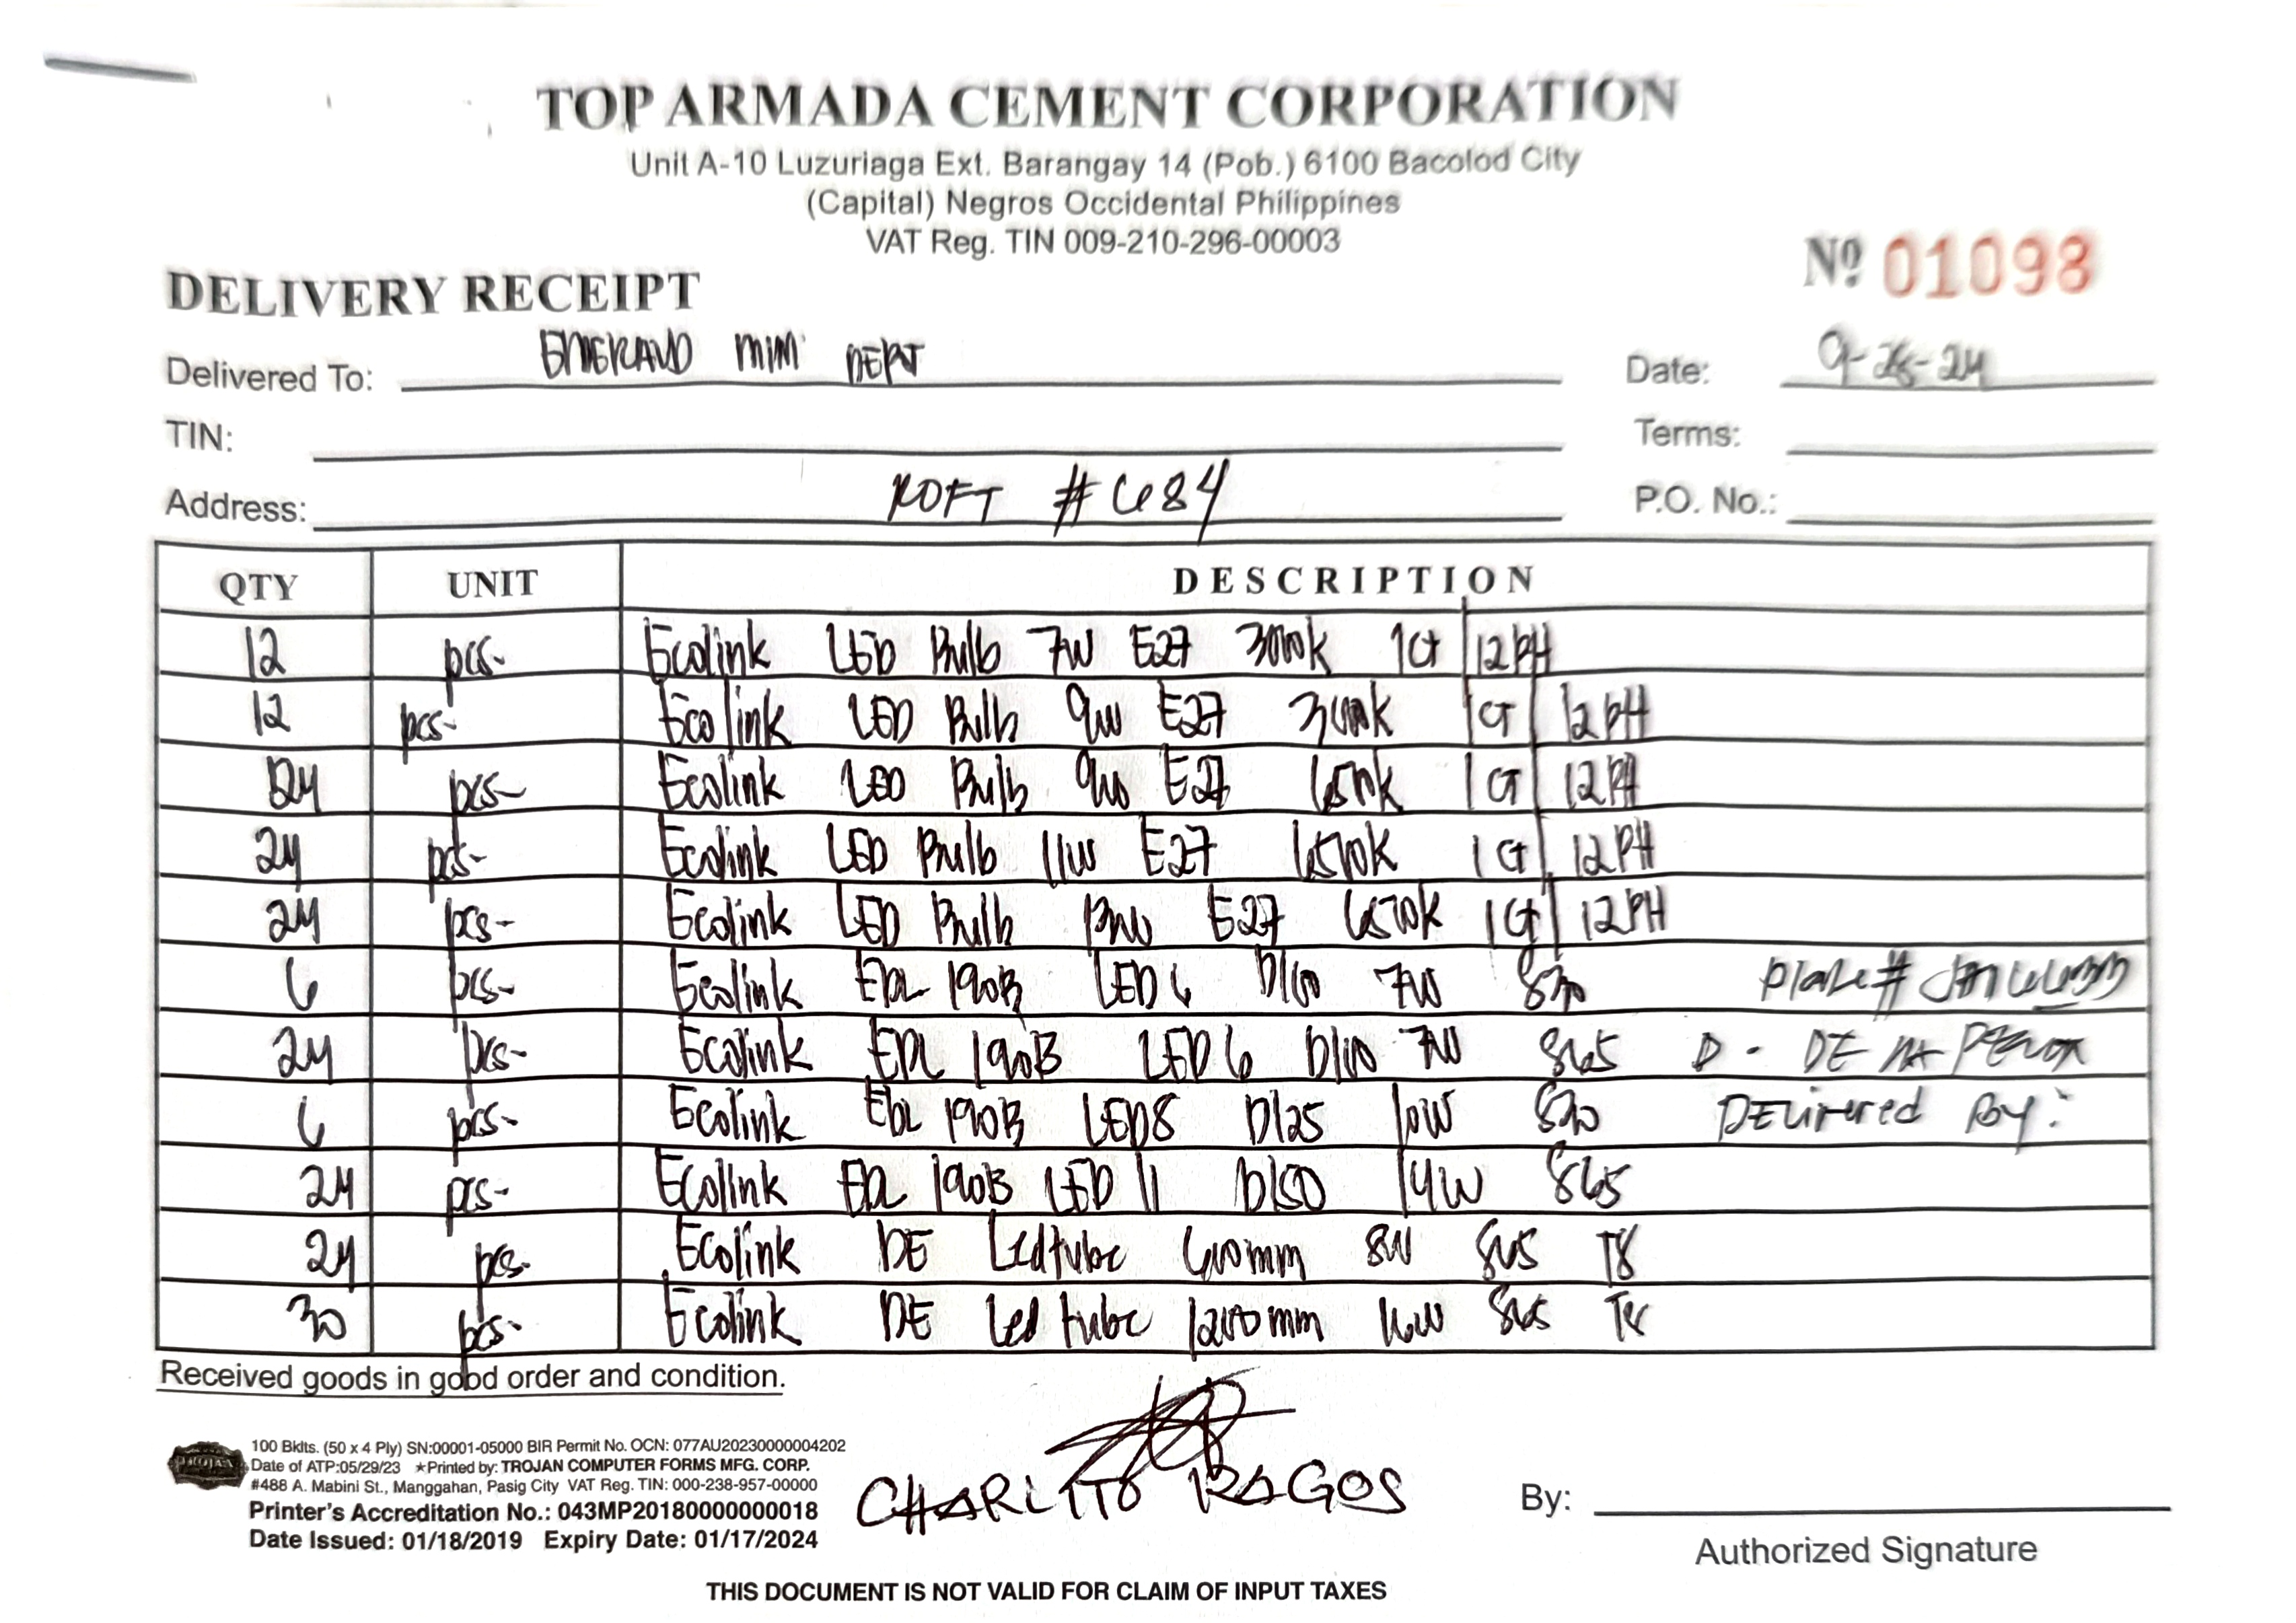 TOP ARMADA CEMENT CORPORATION
Unit A-10 Luzuriaga Ext. Barangay 14 (Pob.) 6100 Bacolod City
(Capital) Negros Occidental Philippines
VAT Reg. TIN 009-210-296-00003
Nº 01098
DELIVERY RECEIPT
Delivered To: EMERALD MIM DEPT Date: 9-26-24
TIN: Terms:
Address: ROFT #684 P.O. No.:
QTY UNIT DESCRIPTION
12 pcs- Ecolink LED Bulb 7W E27 3000k 1CT 12PH
12 pcs- Ecolink LED Bulb 9W E27 3000k 1CT 12PH
24 pcs- Ecolink LED Bulb 9W E27 6500k 1CT 12PH
24 pcs- Ecolink LED Bulb 11W E27 6500k 1CT 12PH
24 pcs- Ecolink LED Bulb 13W E27 6500k 1CT 12PH
6 pcs- Ecolink EDL 190B LED6 D100 7W 830 Plate#
24 pcs- Ecolink EDL 190B LED6 D100 7W 865 D. DE
6 pcs- Ecolink EDL 190B LED8 D125 10W 830 DELivered By:
24 pcs- Ecolink EDL 190B LED 11 D150 14W 865
24 pcs. Ecolink DE Ledtube 600mm 8W 865 T8
30 pcs- Ecolink DE Led tube 1200mm 16W 865 T8
Received goods in good order and condition.
TROJAN
100 Bklts. (50 x 4 Ply) SN:00001-05000 BIR Permit No. OCN: 077AU20230000004202
Date of ATP:05/29/23 ★Printed by: TROJAN COMPUTER FORMS MFG. CORP.
#488 A. Mabini St., Manggahan, Pasig City VAT Reg. TIN: 000-238-957-00000
Printer's Accreditation No.: 043MP20180000000018
Date Issued: 01/18/2019 Expiry Date: 01/17/2024
CHARLITO RAGOS
By:
Authorized Signature
THIS DOCUMENT IS NOT VALID FOR CLAIM OF INPUT TAXES